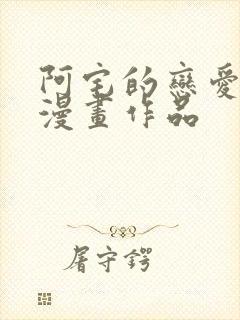 阿宅的戀愛
漫畫作品
屠守鍔